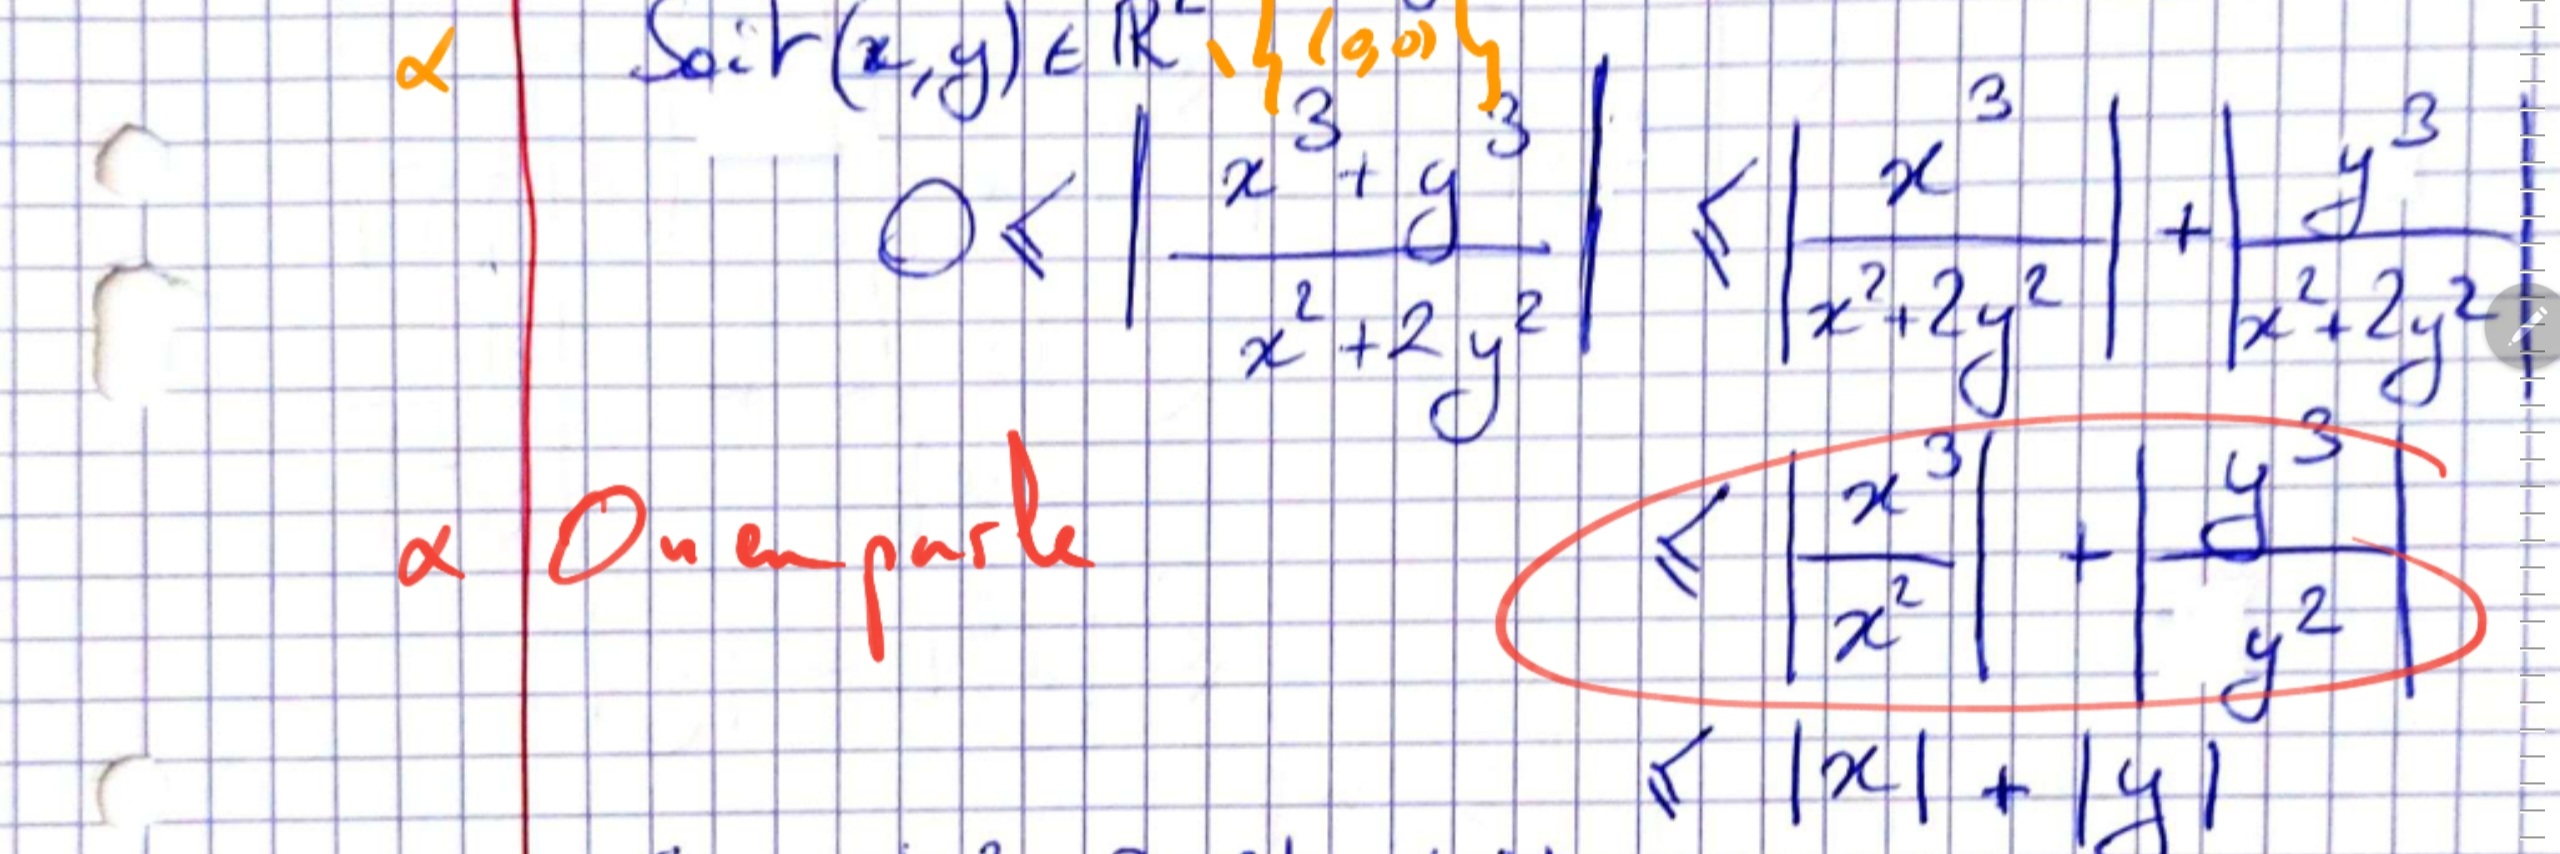 α Soit (x,y) ∈ ℝ² \ {(0,0)}
0 ⩽ | (x³ + y³) / (x² + 2y²) | ⩽ | x³ / (x² + 2y²) | + | y³ / (x² + 2y²) |
α On en parle ⩽ | x³ / x² | + | y³ / y² |
⩽ |x| + |y|